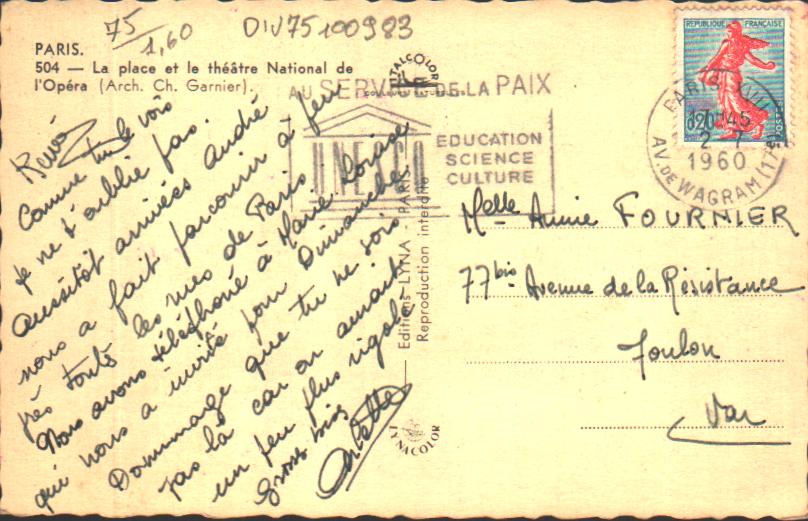 75
1,60
DIV75100983
PARIS.
504 — La place et le théâtre National de
l'Opéra (Arch. Ch. Garnier).
ITALCOLOR
AU SERVICE DE LA PAIX
UNESCO
EDUCATION
SCIENCE
CULTURE
REPUBLIQUE FRANÇAISE
0,20
POSTES
PARIS XVII
17H45
2-7
1960
AV. DE WAGRAM (17e)
Comme tu le vois
je ne t'oublie pas.
aussitôt arrivées André
nous a fait parcourir à peu
près toutes les rues de Paris.
Nous avons téléphoné à Marie Louise
qui nous a invité pour Dimanche
Dommage que tu ne sois
pas là car on aurait
un peu plus rigolé
Gross bises
Arlette
Editions LYNA - PARIS
Reproduction interdite
LYNACOLOR
Melle Annie FOURNIER
77bis Avenue de la Résistance
Toulon
Var